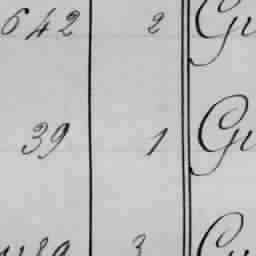 642 2 Gu
39 1 Gu
3